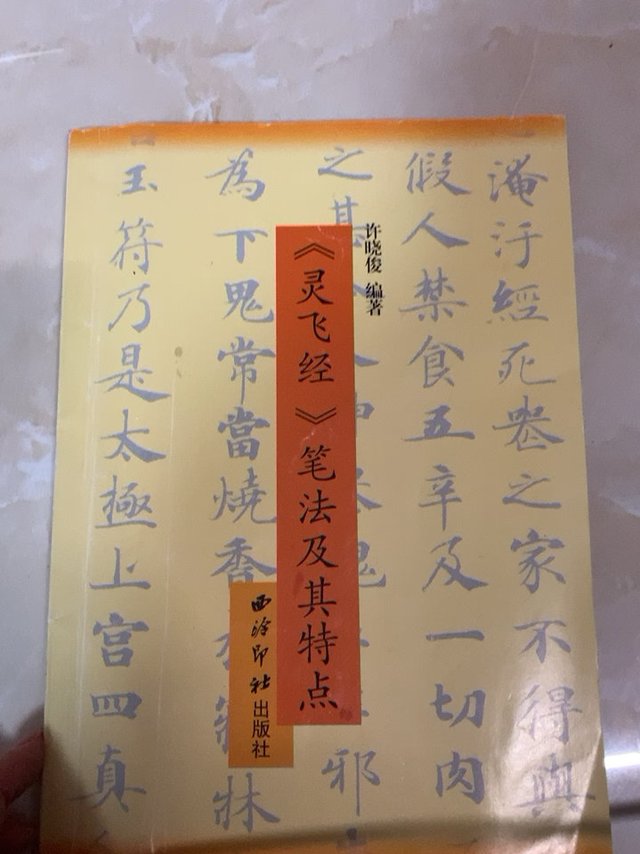 淹汙經死喪之家不得與
假人禁食五辛及一切肉
许晓俊 编著
之其
邪
《灵飞经》笔法及其特点
西泠印社出版社
為下鬼常當燒香
牀
玉符乃是太極上宮四真